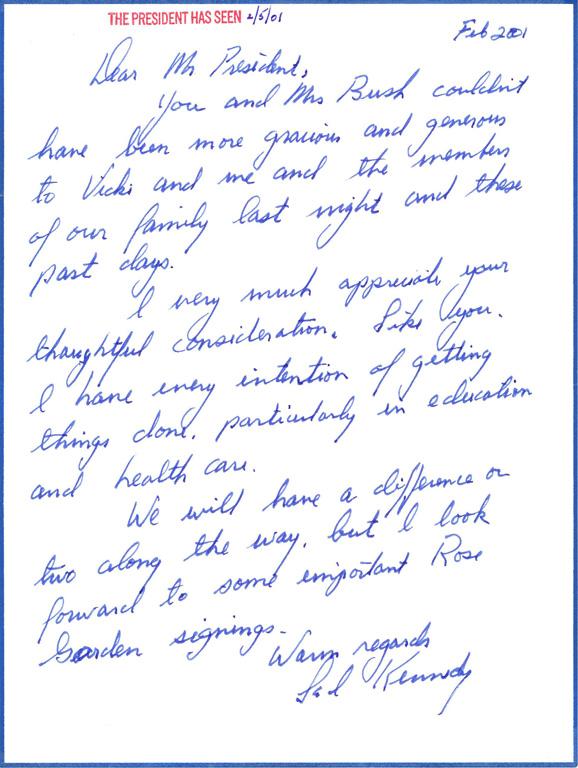 THE PRESIDENT HAS SEEN 2/5/01
Feb 2001
Dear Mr President,
You and Mrs Bush couldn't
have been more gracious and generous
to Vicki and me and the members
of our family last night and these
past days.
I very much appreciate your
thoughtful consideration. Like you.
I have every intention of getting
things done. particularly in education
and health care.
We will have a difference or
two along the way. but I look
forward to some important Rose
Garden signings.
Warm regards
Ted Kennedy